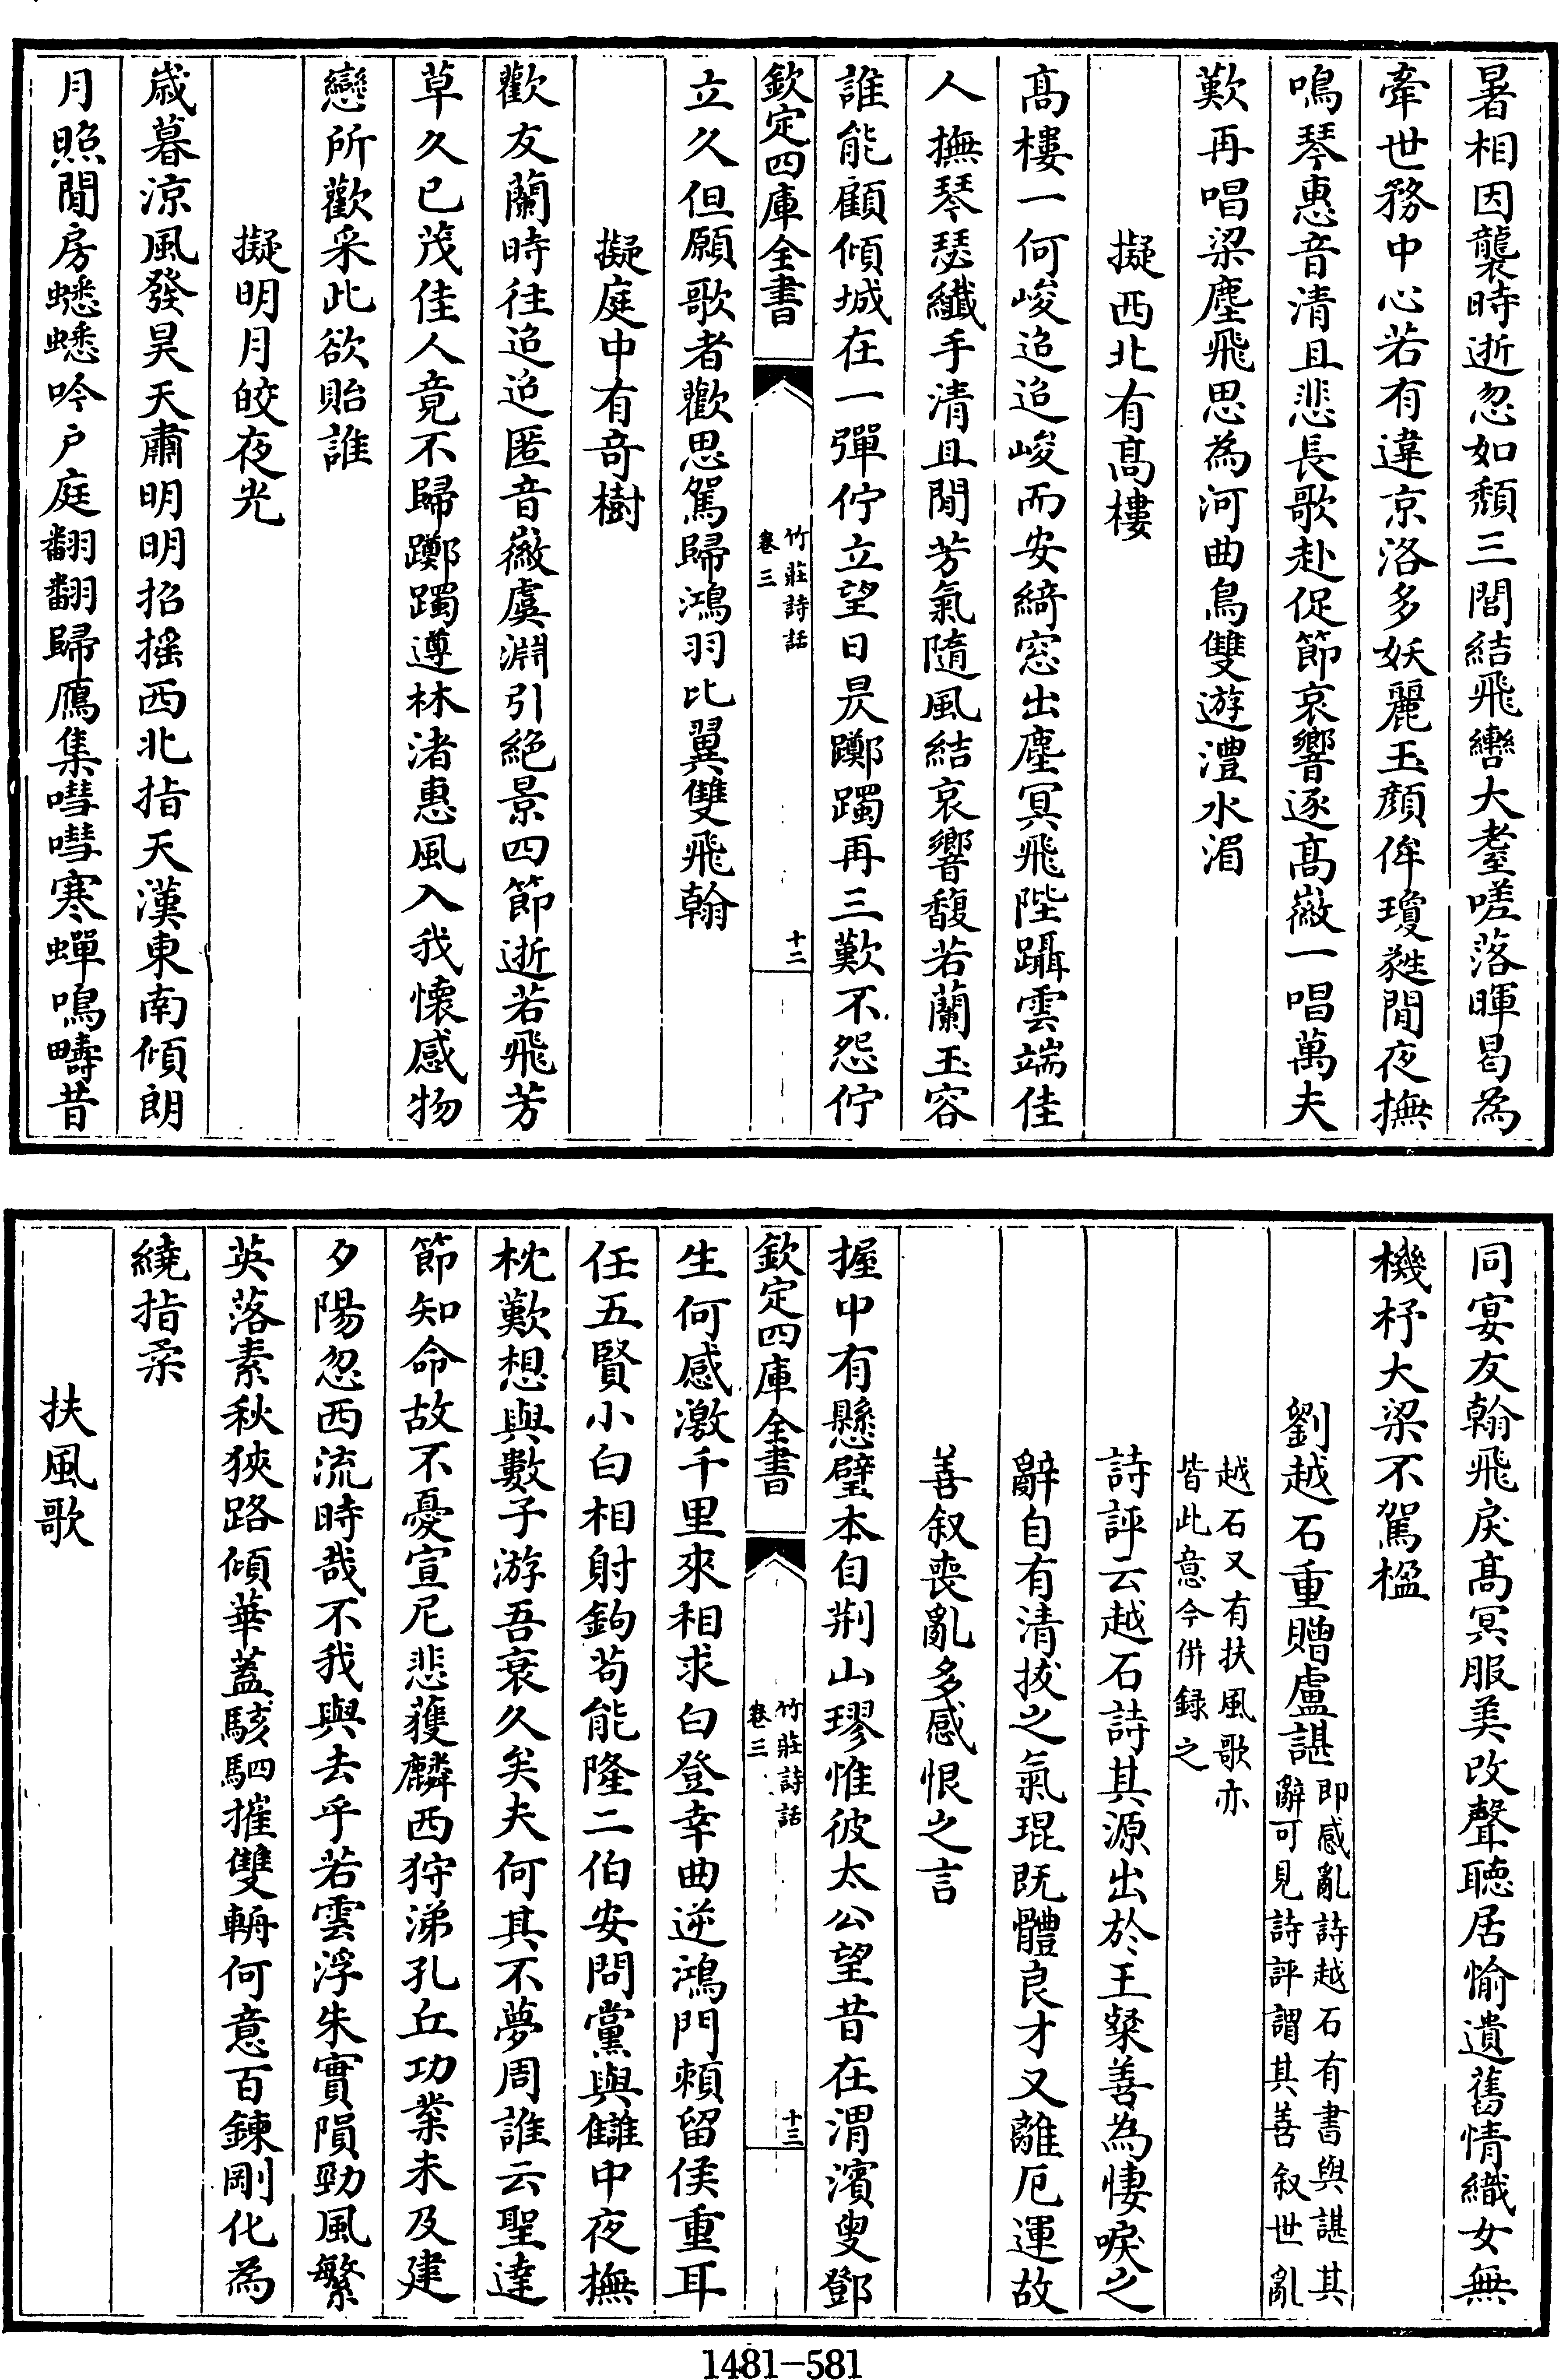 暑相因襲時逝忽如頽三閭結飛轡大耋嗟落暉曷為
牽世務中心若有違京洛多妖麗玉顔侔瓊蕤閒夜撫
鳴琴惠音清且悲長歌赴促節哀響逐髙徽一唱萬夫
歎再唱梁塵飛思為河曲鳥雙遊澧水湄
擬西北有髙樓
髙樓一何峻迢迢峻而安綺窓出塵冥飛陛躡雲端佳
人撫琴瑟纖手清且閒芳氣隨風結哀響馥若蘭玉容
誰能顧傾城在一彈佇立望日昃躑躅再三歎不怨佇
欽定四庫全書
竹莊詩話
卷三
十二
立久但願歌者歡思駕歸鴻羽比翼雙飛翰
擬庭中有奇樹
歡友蘭時往迢迢匿音徽虞淵引絶景四節逝若飛芳
草久已茂佳人竟不歸躑躅遵林渚惠風入我懷感物
戀所歡采此欲貽誰
擬明月皎夜光
歳暮涼風發昊天肅明明招揺西北指天漢東南傾朗
月照閒房蟋蟀吟户庭翻翻歸鴈集嘒嘒寒蟬鳴疇昔
同宴友翰飛戾髙冥服美改聲聽居愉遺舊情織女無
機杼大梁不駕楹
劉越石重贈盧諶
即感亂詩越石有書與諶其
辭可見詩評謂其善叙世亂
越石又有扶風歌亦
皆此意今併録之
詩評云越石詩其源出於王粲善為悽唳之
辭自有清拔之氣琨既體良才又離厄運故
善叙喪亂多感恨之言
握中有懸璧本自荆山璆惟彼太公望昔在渭濱叟鄧
欽定四庫全書
竹莊詩話
卷三
十三
生何感激千里來相求白登幸曲逆鴻門賴留侯重耳
任五賢小白相射鉤茍能隆二伯安問黨與讎中夜撫
枕歎想與數子游吾衰久矣夫何其不夢周誰云聖達
節知命故不憂宣尼悲獲麟西狩涕孔丘功業未及建
夕陽忽西流時哉不我與去乎若雲浮朱實隕勁風繁
英落素秋狹路傾華蓋駭駟摧雙輈何意百鍊剛化為
繞指柔
扶風歌
1481-581